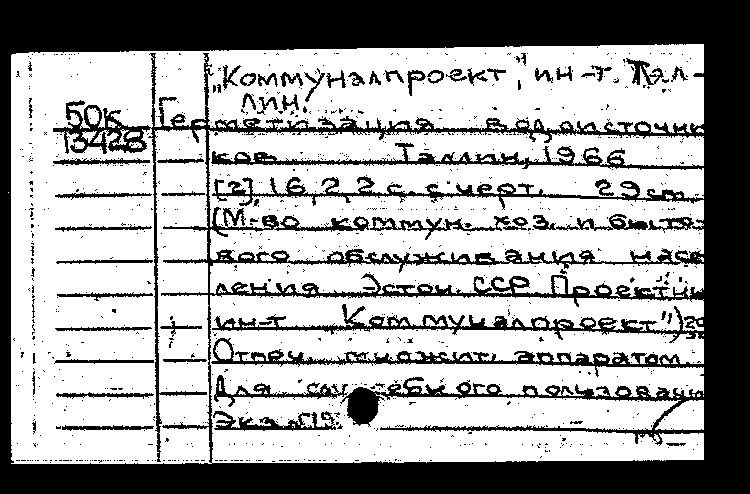 „Коммуналпроект", ин-т. Тал-
лин.
50к
13428
Герметизация водоисточни
ков Таллин, 1966
[2], 16, 2, 2 с. с черт. 29 см
(М-во коммун. хоз. и быто-
вого обслуживания насе
ления Эстон. ССР Проектны
ин-т Коммуналпроект")
Отпеч. множит. аппаратом
Для служебного пользовани
Экз. №19